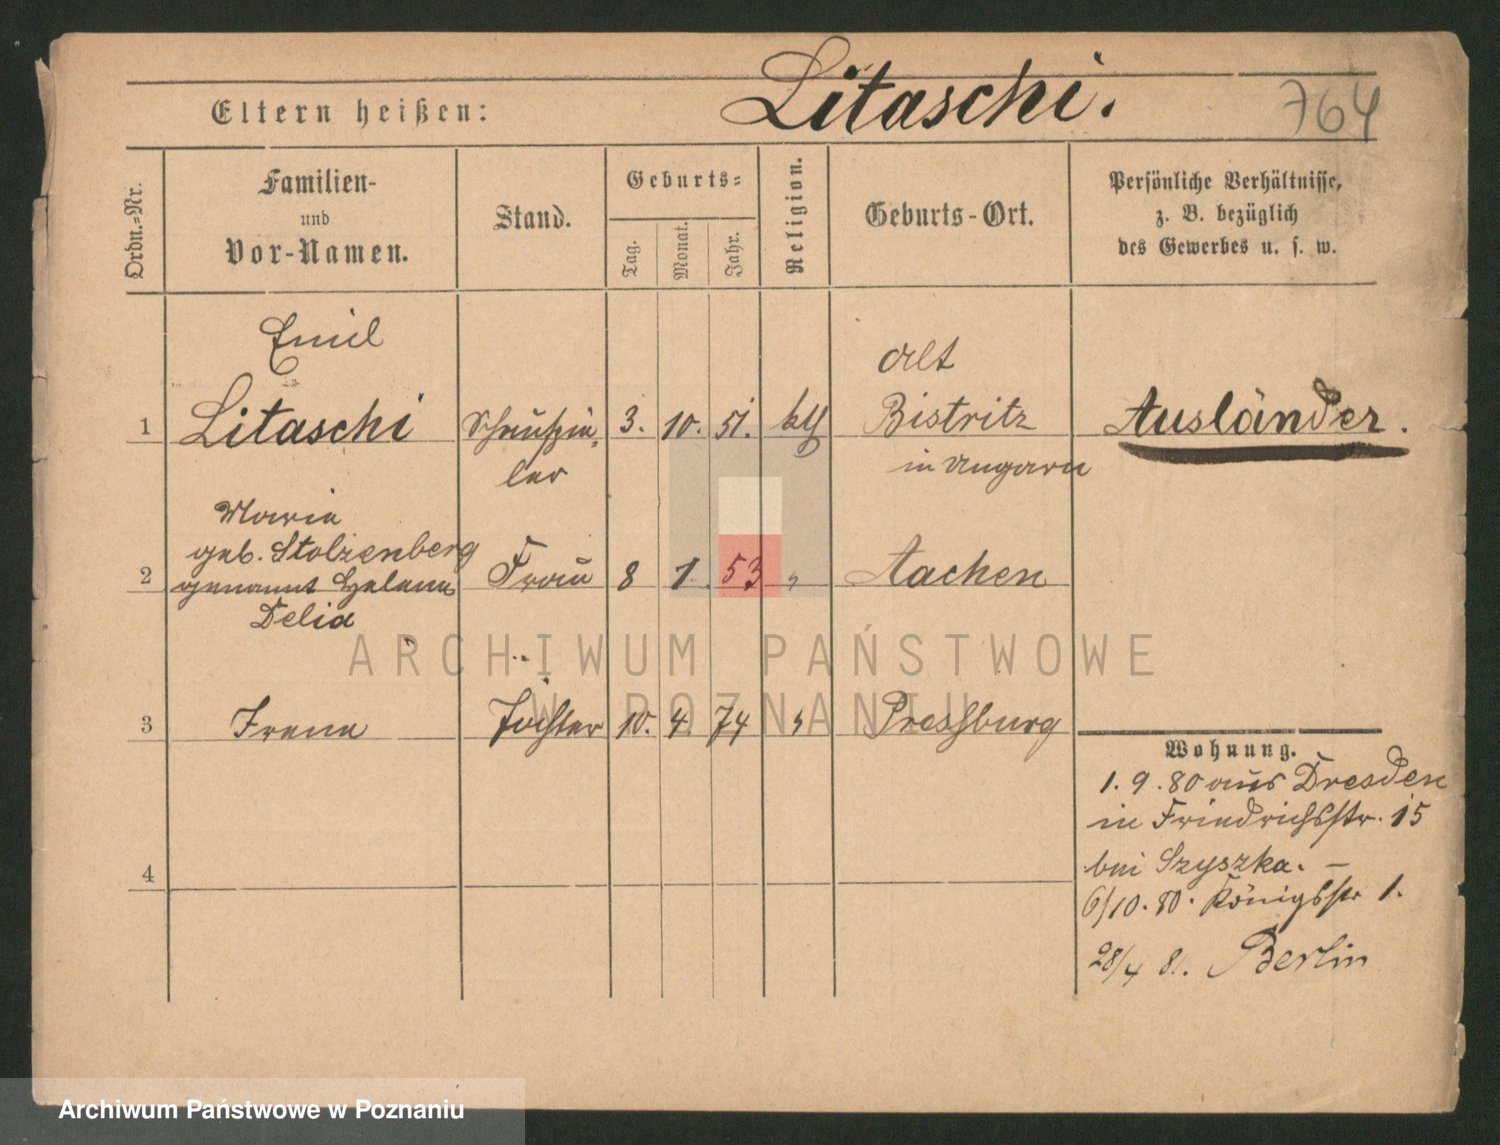 Eltern heißen: Litaschi. 764
Ordn.-Nr.
Familien-
und
Vor-Namen.
Stand.
Geburts-
Tag.
Monat.
Jahr.
Religion.
Geburts-Ort.
Persönliche Verhältnisse,
z. B. bezüglich
des Gewerbes u. s. w.
Emil
1 Litaschi Schauspie- 3. 10. 51. kth Alt Bistritz Ausländer.
ler in Ungarn
Maria
geb. Stolzenberg
2 genannt Helena Frau 8 1. 53 " Aachen
Delia
3 Irena Tochter 10. 4. 74 " Pressburg
Wohnung.
1. 9. 80 aus Dresden
in Friedrichsstr. 15
bei Szyszka. –
6/10. 80. Königsstr 1.
28/4 81. Berlin
4
ARCHIWUM PAŃSTWOWE
W POZNANIU
Archiwum Państwowe w Poznaniu